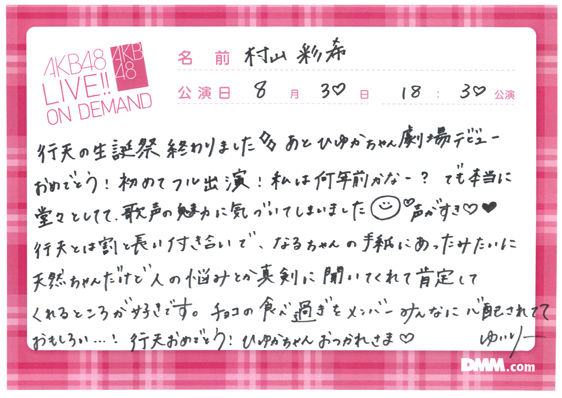 AKB48
LIVE!!
ON DEMAND
AKB
48
名前 村山彩希
公演日 8月30♡日 18:30♡公演
行天の生誕祭終わりました あとひゆかちゃん劇場デビュー
おめでとう！初めてフル出演！私は何年前かなー？でも本当に
堂々としてて、歌声の魅力に気づいてしまいました☺♡声がすき♡♥
行天とは割と長い付き合いで、なるちゃんの手紙にあったみたいに
天然ちゃんだけど人の悩みとか真剣に聞いてくれて肯定して
くれるところが好きです。チョコの食べ過ぎをメンバーみんなに心配されてて
おもしろい…！行天おめでとう！ひゆかちゃんおつかれさま♡ ゆいりー
DMM.com